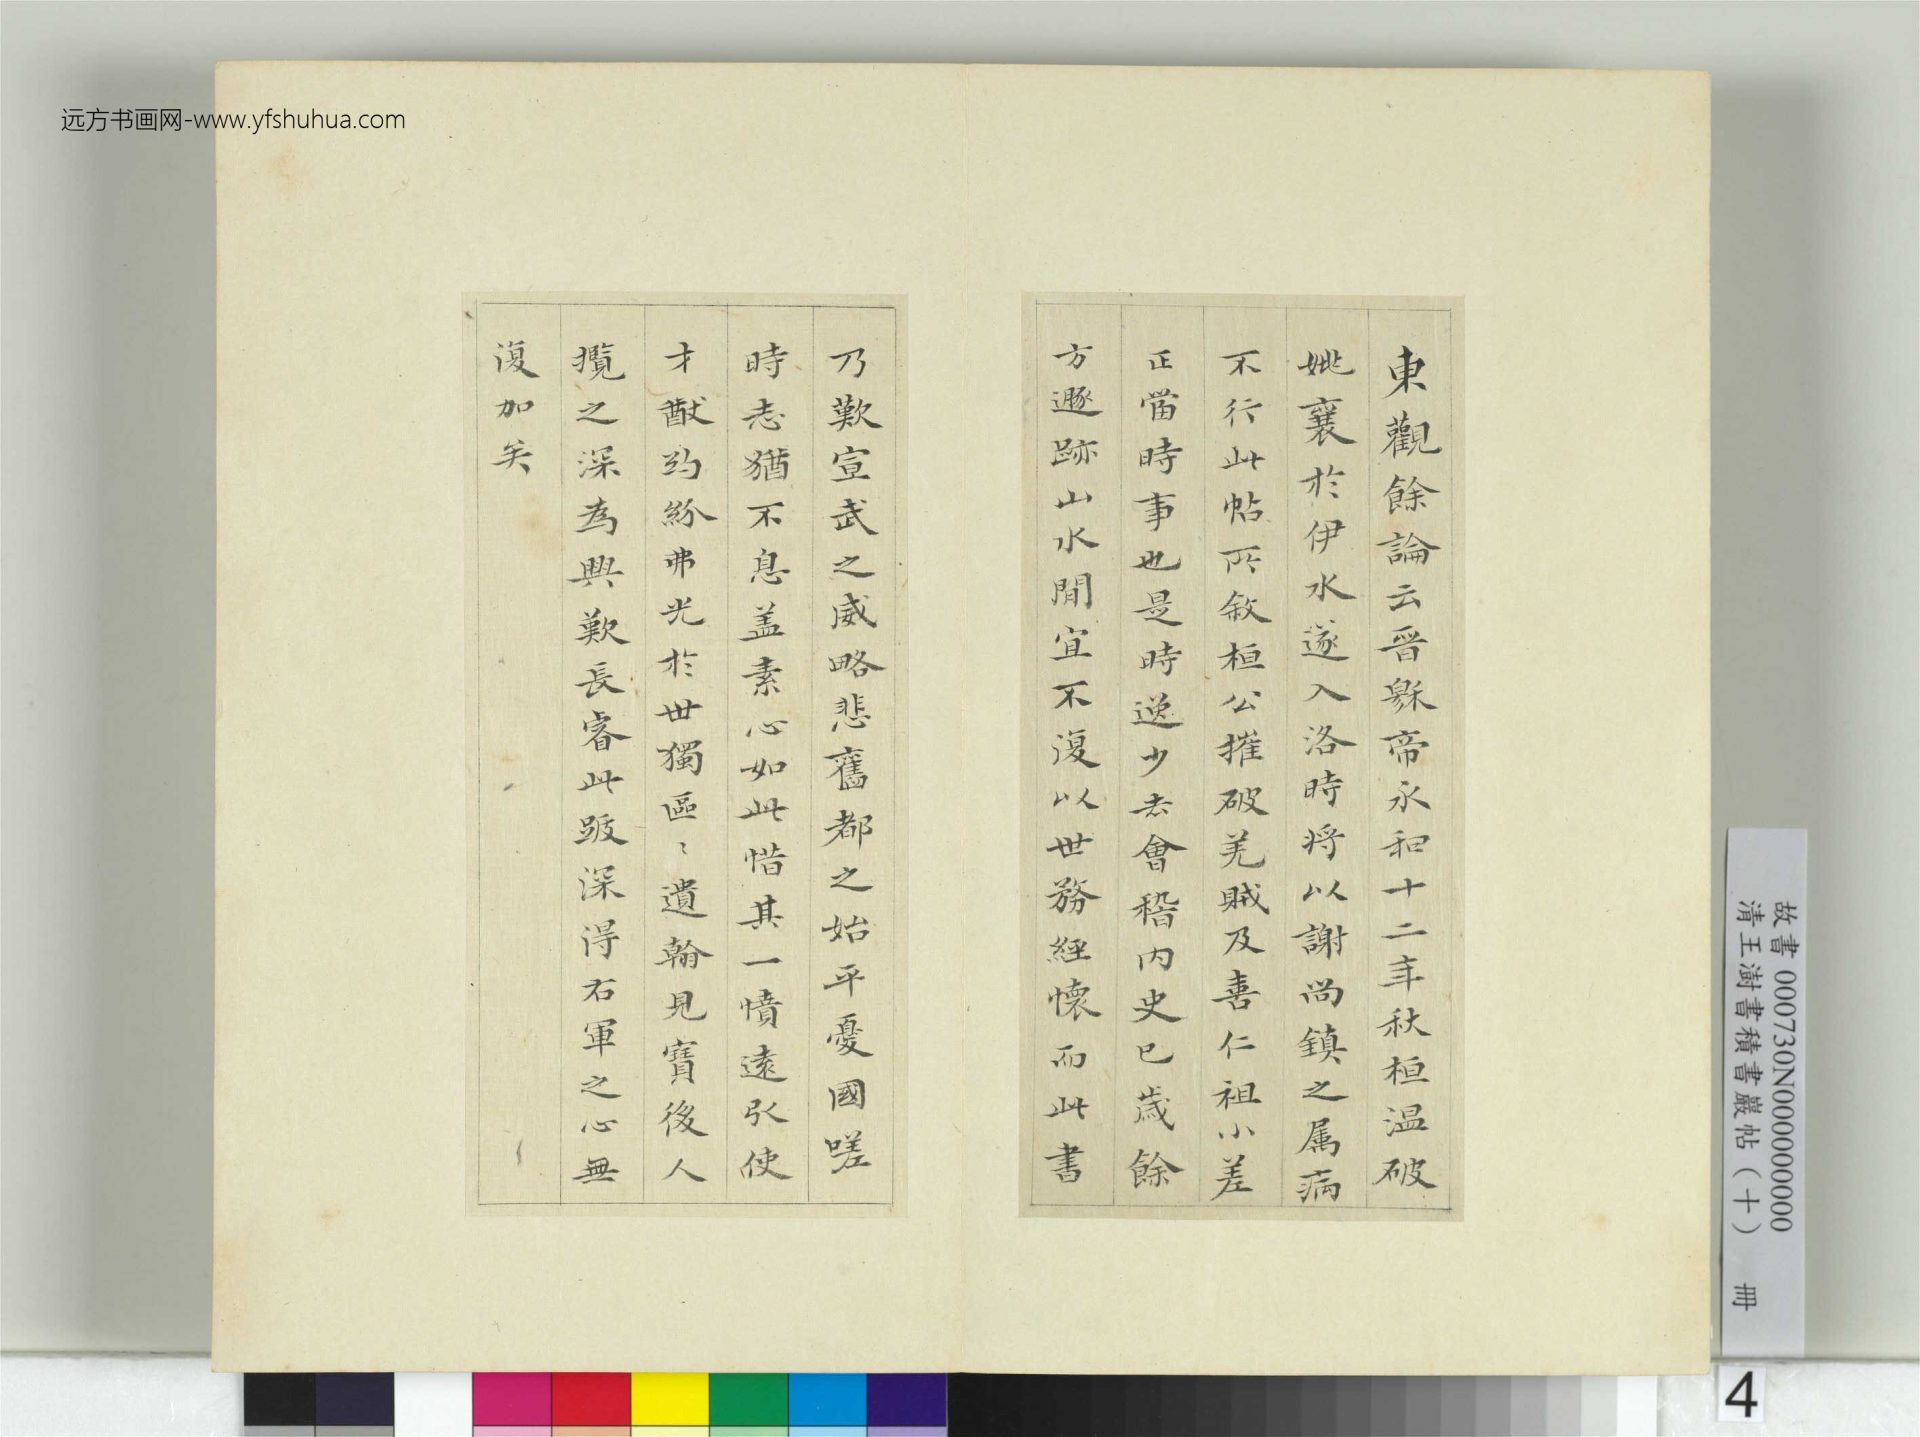 远方书画网-www.yfshuhua.com
東觀餘論云晉繇帝永和十二年秋桓温破
姚襄於伊水遂入洛時将以謝尚鎮之属病
不行此帖所敘桓公摧破羌賊及喜仁祖小差
正當時事也是時逸少去會稽内史已歳餘
方遯跡山水閒宜不復以世務經懷而此書
乃歎宣武之威略悲舊都之始平憂國嗟
時志猶不息盖素心如此惜其一憤遠引使
才猷約紛弗光於世獨區〻遺翰見寶後人
攬之深為興歎長睿此跋深得右軍之心無
復加矣
故書 000730N000000000
清王澍書積書巖帖（十） 冊
4